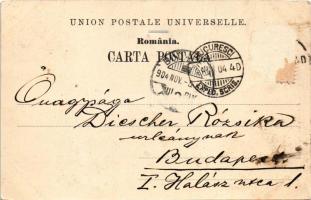 UNION POSTALE UNIVERSELLE.
România.
CARTA POSTALA
BUCURESCI
04 4D
EXPED. SCRIS.
904 NOV.
Ő nagysága
Discher Rózsika
urleánynak
Budapest
I. Halász utca 1.